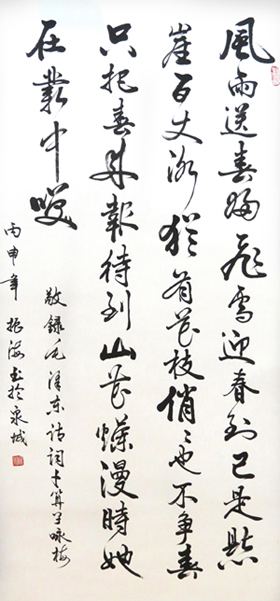 風雨送春歸飛雪迎春到已是懸
崖百丈冰猶有花枝俏俏也不爭春
只把春來報待到山花爛漫時她
在叢中笑
敬錄毛澤東詩詞卜算子咏梅
丙申年 振海書於泉城